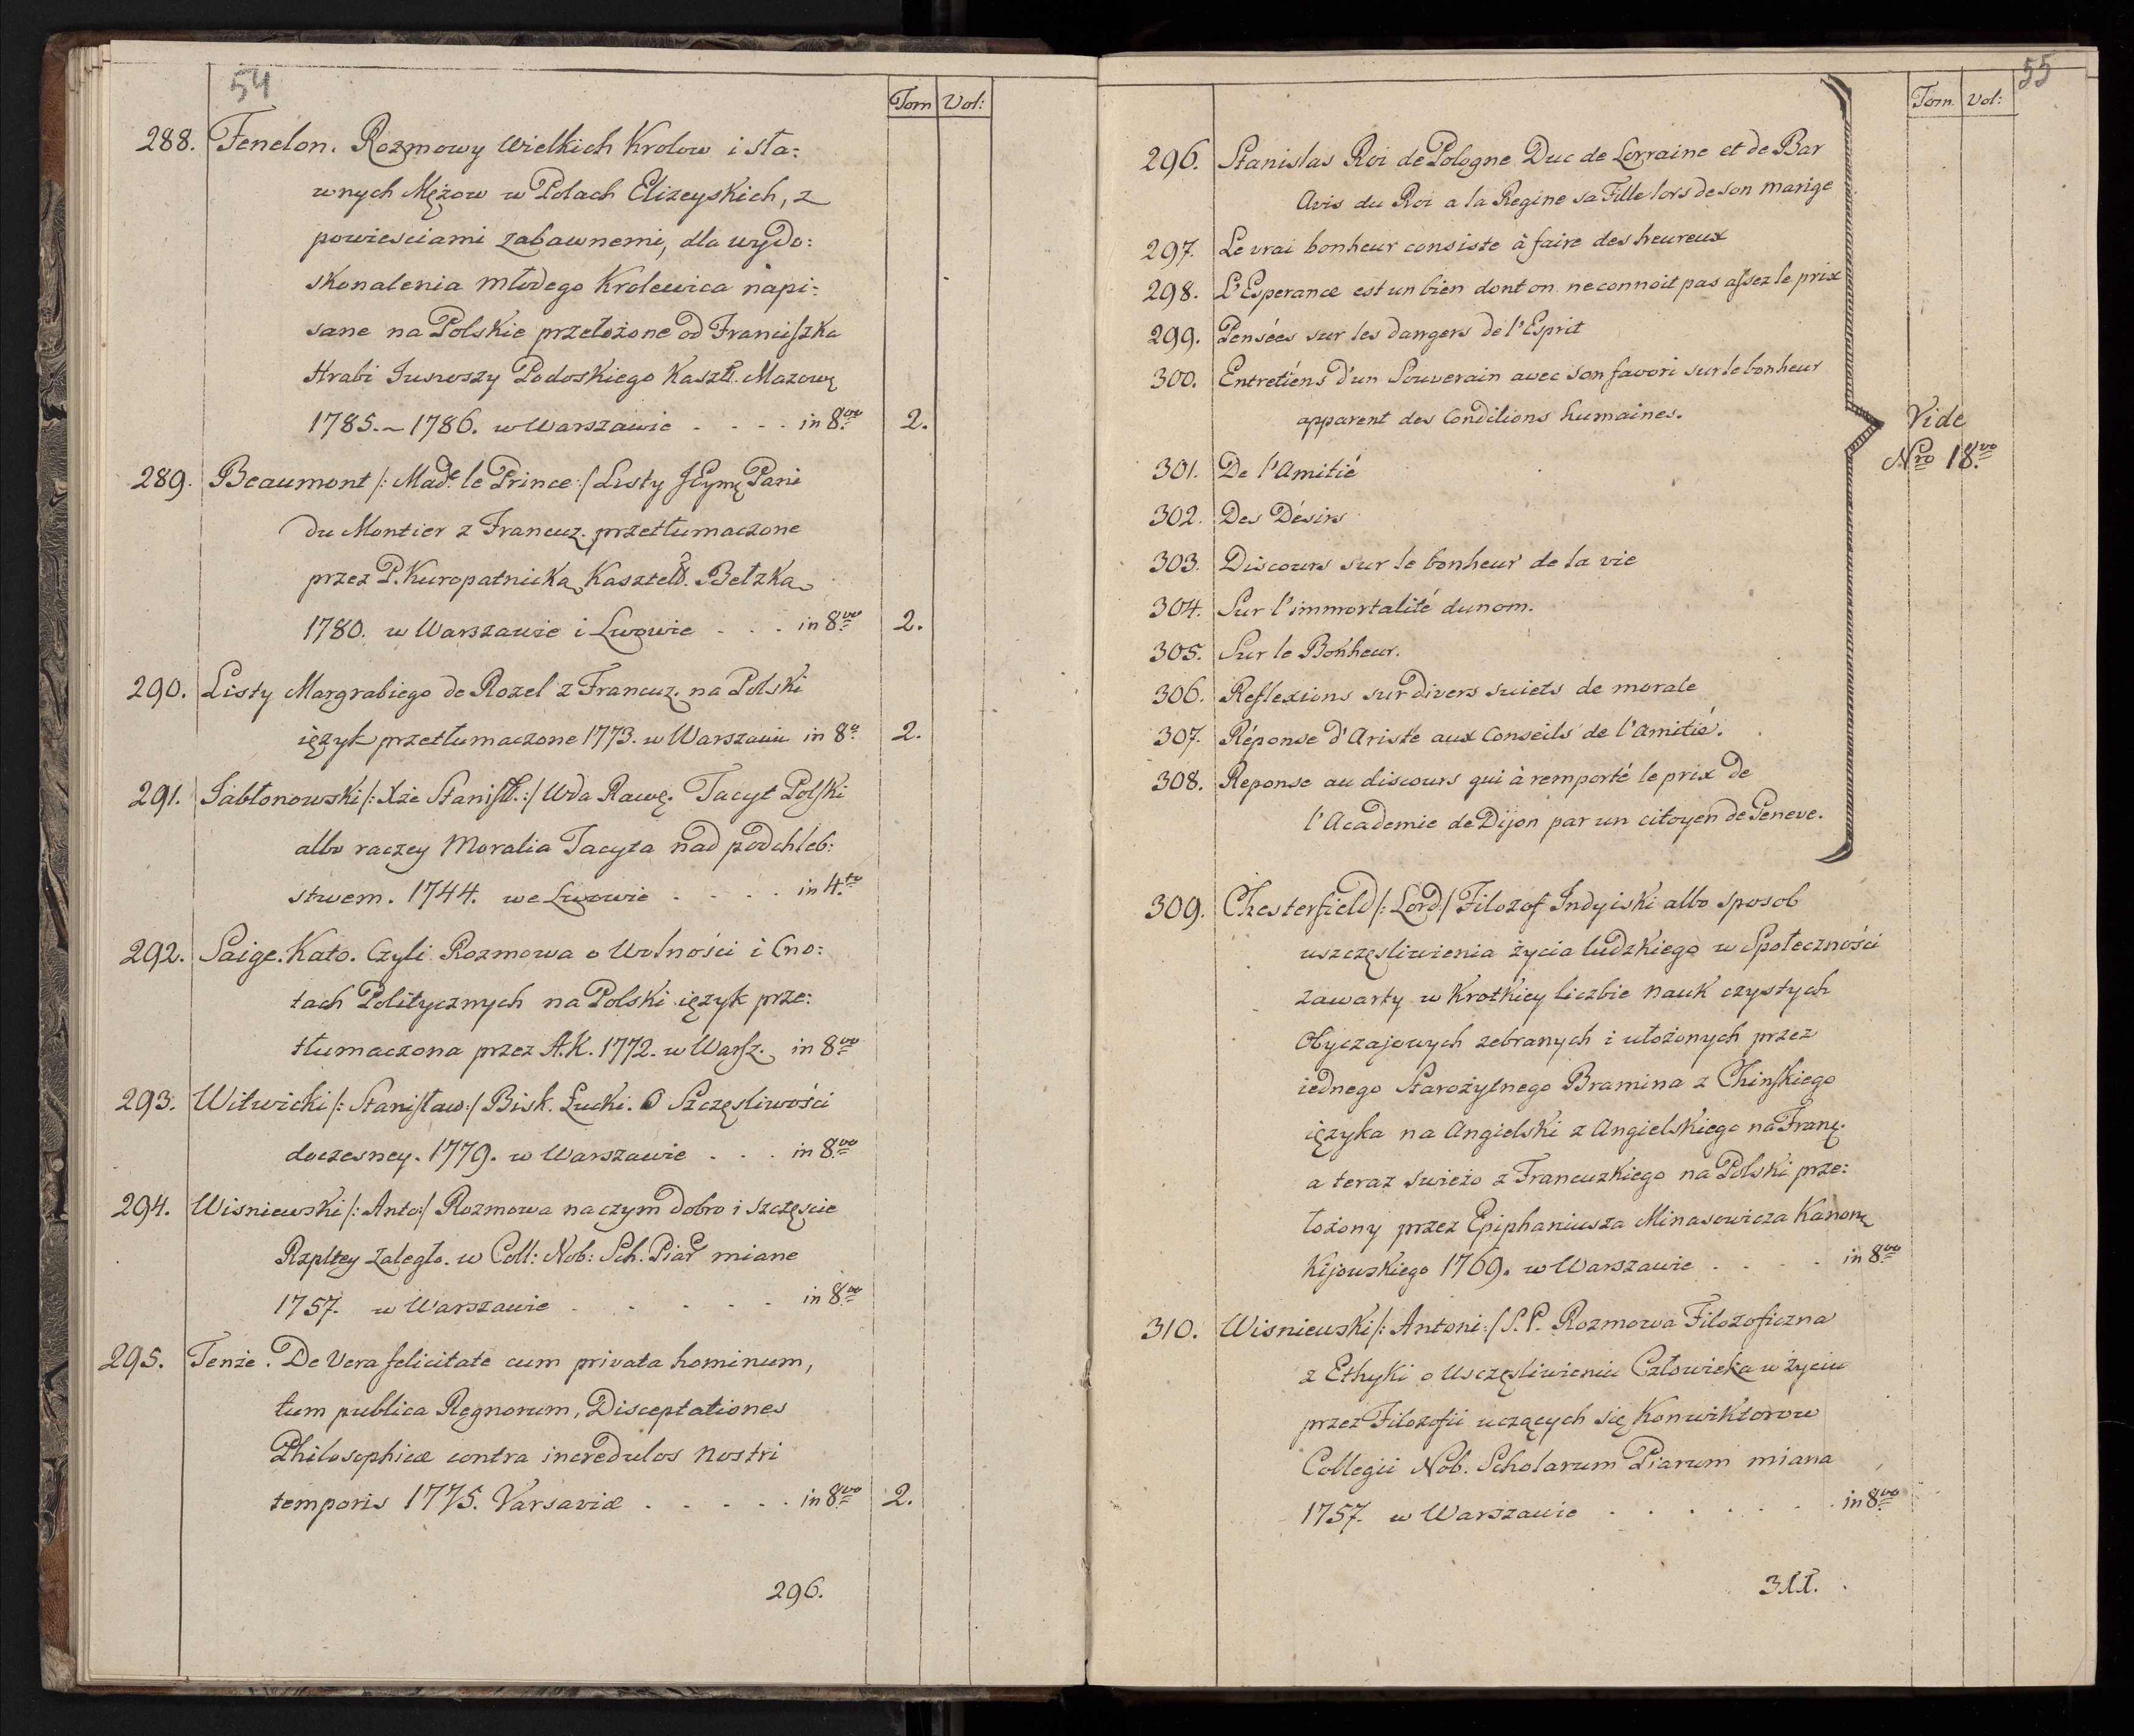 54
Tom Vol:
288. Fenelon. Rozmowy Wielkich Krolow i sła:
wnych Mężow w Polach Elizeyskich, z
powiesciami zabawnemi, dla wydo:
skonalenia młodego Krolewica napi:
sane na Polskie przełożone od Franciszka
Hrabi Junoszy Podoskiego Kasztł. Mazow.
1785.~1786. w Warszawie . . . . in 8.vo 2.
289. Beaumont /: Made. le Prince :/ Listy JEymę Pani
du Montier z Francuz. przetłumaczone
przez P. Kuropatnicką Kasztelł. Bełzką
1780. w Warszawie i Lwowie . . . in 8.vo 2.
290. Listy Margrabiego de Rozel z Francuz. na Polski
ięzyk przetłumaczone 1773. w Warszawie in 8o 2.
291. Jabłonowski /: Xże Stanisł. :/ Wda Rawę. Tacyt Polski
albo raczey Moralia Tacyta nad podchleb:
stwem. 1744. we Lwowie . . . . in 4.to
292. Saige. Kato. Czyli Rozmowa o Wolności i Cno:
tach Politycznych na Polski ięzyk prze:
tłumaczona przez A.K. 1772. w Warsz. in 8vo
293. Witwicki /: Stanisław :/ Bisk. Łucki. O Szczęsliwości
doczesney. 1779. w Warszawie . . . in 8.vo
294. Wisniewski /: Anto:/ Rozmowa na czym dobro i szczęscie
Rzpltey zależo. w Coll: Nob: Sch. Piar miane
1757. w Warszawie . . . . . in 8.vo
295. Tenże. De Vera felicitate cum privata hominum,
tum publica Regnorum, Disceptationes
Philosophicæ contra incredulos nostri
temporis 1775. Varsaviæ . . . . . in 8.vo 2.
296.
55
Tom. Vol:
296. Stanislas Roi de Pologne Duc de Lorraine et de Bar
Avis du Roi a la Regine sa Fille lors de son marige
297. Le vrai bonheur consiste à faire des heureux
298. L'Esperance est un bien dont on ne connoit pas assez le prix
299. Pensées sur les dangers de l'Esprit
300. Entretiéns d'un Souverain avec son favori sur le bonheur
apparent des Conditions humaines.
Vide
Nro 18.vo
301. De l'Amitié
302. Des Désirs
303. Discours sur le bonheur de la vie
304. Sur l'immortalité du nom.
305. Sur le Bonheur.
306. Reflexions sur divers suiets de morale
307. Réponse d'Ariste aux Conseils de l'Amitié.
308. Reponse au discours qui à remporté le prix de
l'Academie de Dijon par un citoyen de Geneve.
309. Chesterfield /: Lord / Filozof Indyiski albo sposob
uszczęsliwienia życia ludzkiego w Społeczności
zawarty w Krotkiey liczbie nauk czystych
Obyczajowych zebranych i ułożonych przez
iednego Starożytnego Bramina z Chinskiego
ięzyka na Angielski z Angielskiego na Franę.
a teraz swieżo z Francuzkiego na Polski prze:
łożony przez Epiphaniusza Minasowicza Kanon.
Kijowskiego 1769. w Warszawie . . . . in 8vo
310. Wisniewski /: Antoni :/ S.P. Rozmowa Filozoficzna
z Ethyki o Uszczęsliwieniu Człowieka w życiu
przez Filozofii uczących się Konwiktorow
Collegii Nob. Scholarum Piarum miana
1757. w Warszawie . . . . . . in 8.vo
311.